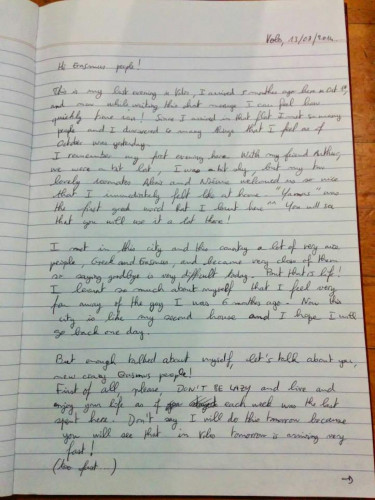 Volo, 13/02/2014.
Hi Erasmus people!
This is my last evening in Volo, I arrived 5 months ago here
and now, while writing this short message I can feel how
quickly time runs! Since I arrived in that flat I met so many
people and I discovered so many things that I feel as if
October was yesterday.
I remember my first evening here. With my friend
we were a bit lost, I was a bit shy, but my two
lovely roommates and welcomed me so nice
that I immediately felt like at home. "Yamas" was
the first greek word that I learnt here. You will see
that you will use it a lot there!
I met in this city and this country a lot of very nice
people, Greek and Erasmus, and became very close of them
so saying goodbye is very difficult today. But that is life!
I learnt so much about myself that I feel very
far away of the guy I was 6 months ago. Now this
city is like my second house and I hope I will
go back one day.
But enough talked about myself, let's talk about you,
new crazy Erasmus people!
First of all please DON'T BE LAZY and live and
enjoy your life as if each week was the last
spent here. Don't say I will do this tomorrow because
you will see that in Volo tomorrow is arriving very
fast!
(too fast...)
→